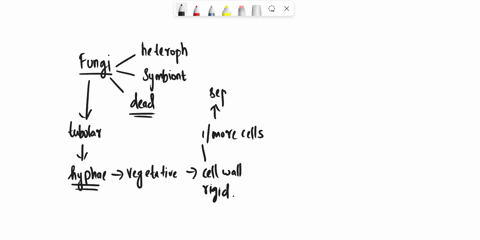 heteroph
Fungi
symbiont
dead
sep
tubolar
1/more cells
hyphae → vegetative → cell wall
rigid.